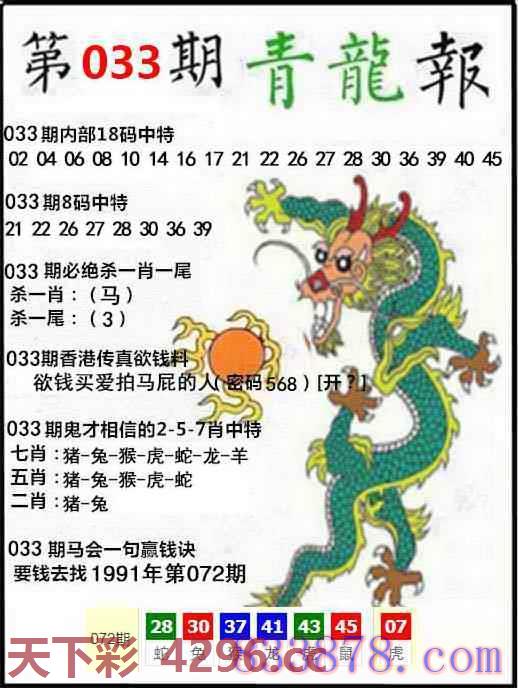 第033期青龍報
033期内部18码中特
02 04 06 08 10 14 16 17 21 22 26 27 28 30 36 39 40 45
033期8码中特
21 22 26 27 28 30 36 39
033 期必绝杀一肖一尾
杀一肖：（马）
杀一尾：（3）
033期香港传真欲钱料
欲钱买爱拍马屁的人(密码568) [开?]
033期鬼才相信的2-5-7肖中特
七肖：猪-兔-猴-虎-蛇-龙-羊
五肖：猪-兔-猴-虎-蛇
二肖：猪-兔
033 期马会一句赢钱诀
要钱去找1991年第072期
072期 28 30 37 41 43 45 07
蛇 兔 猴 龙 虎 鼠 虎
天下彩 4296.cc